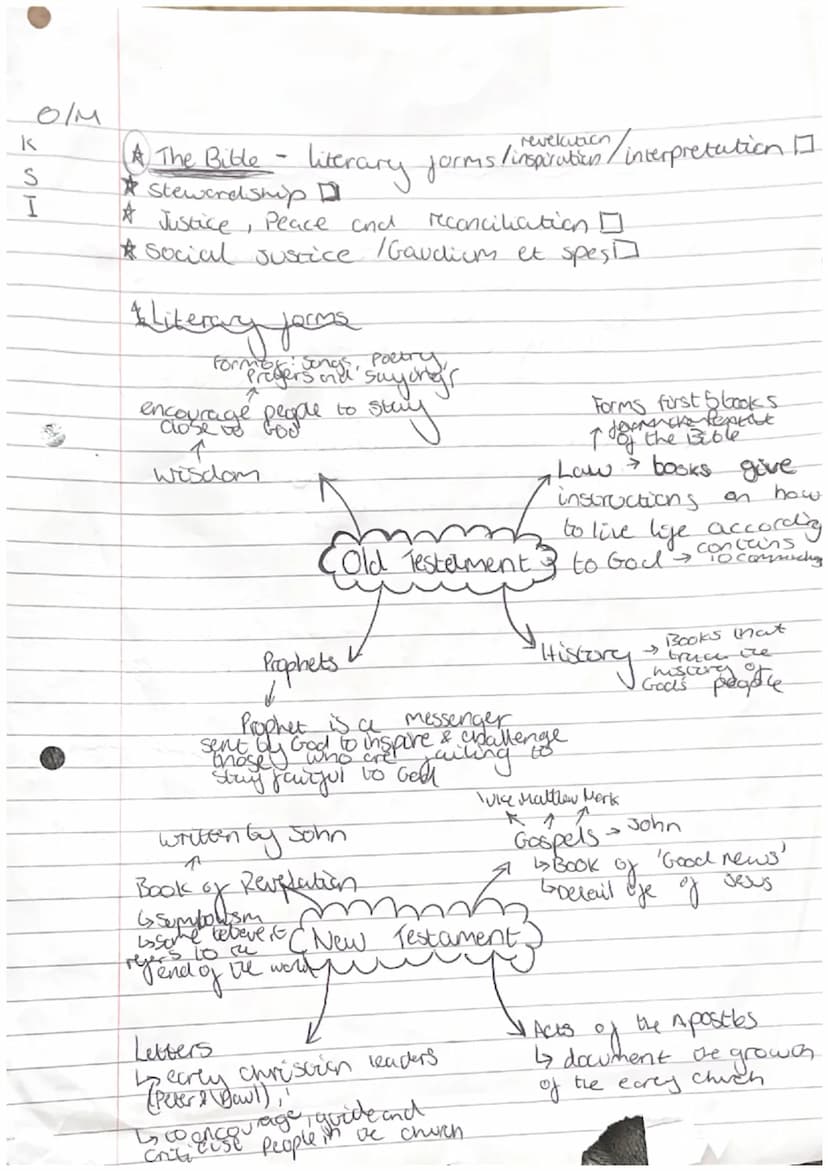 O/M
K
S
I
☆ The Bible - literary forms/revelation/inspiration/interpretation □
☆ Stewardship □
☆ Justice, Peace and reconciliation □
☆ Social justice /Gaudium et spes □
Literary forms
Form of: songs, poetry,
Prayers and sayings
↑
encourage people to stay
close to God
↑
Wisdom
Forms first 5 books
of the Bible
↑
Law → books give
instructions on how
to live life according
to God → contains
10 comman
Old Testament
Prophets
↓
Prophet is a messenger
sent by God to inspire & challenge
those who are failing to
stay faitful to God
History → Books that
trace the
history of
Gods people
Luke Matthew Mark
Gospels → John
↳ Book of 'Good news'
↳ Detail life of Jesus
written by John
↑
Book of Revelation
↳ symbolism
↳ some believe it
refers to the
end of the world
New Testament
Letters
↳ early christian leaders
(Peter & Paul),
↳ to encourage, guide and
criticise people in the church
Acts of the Apostles
↳ document the growth
of the early church